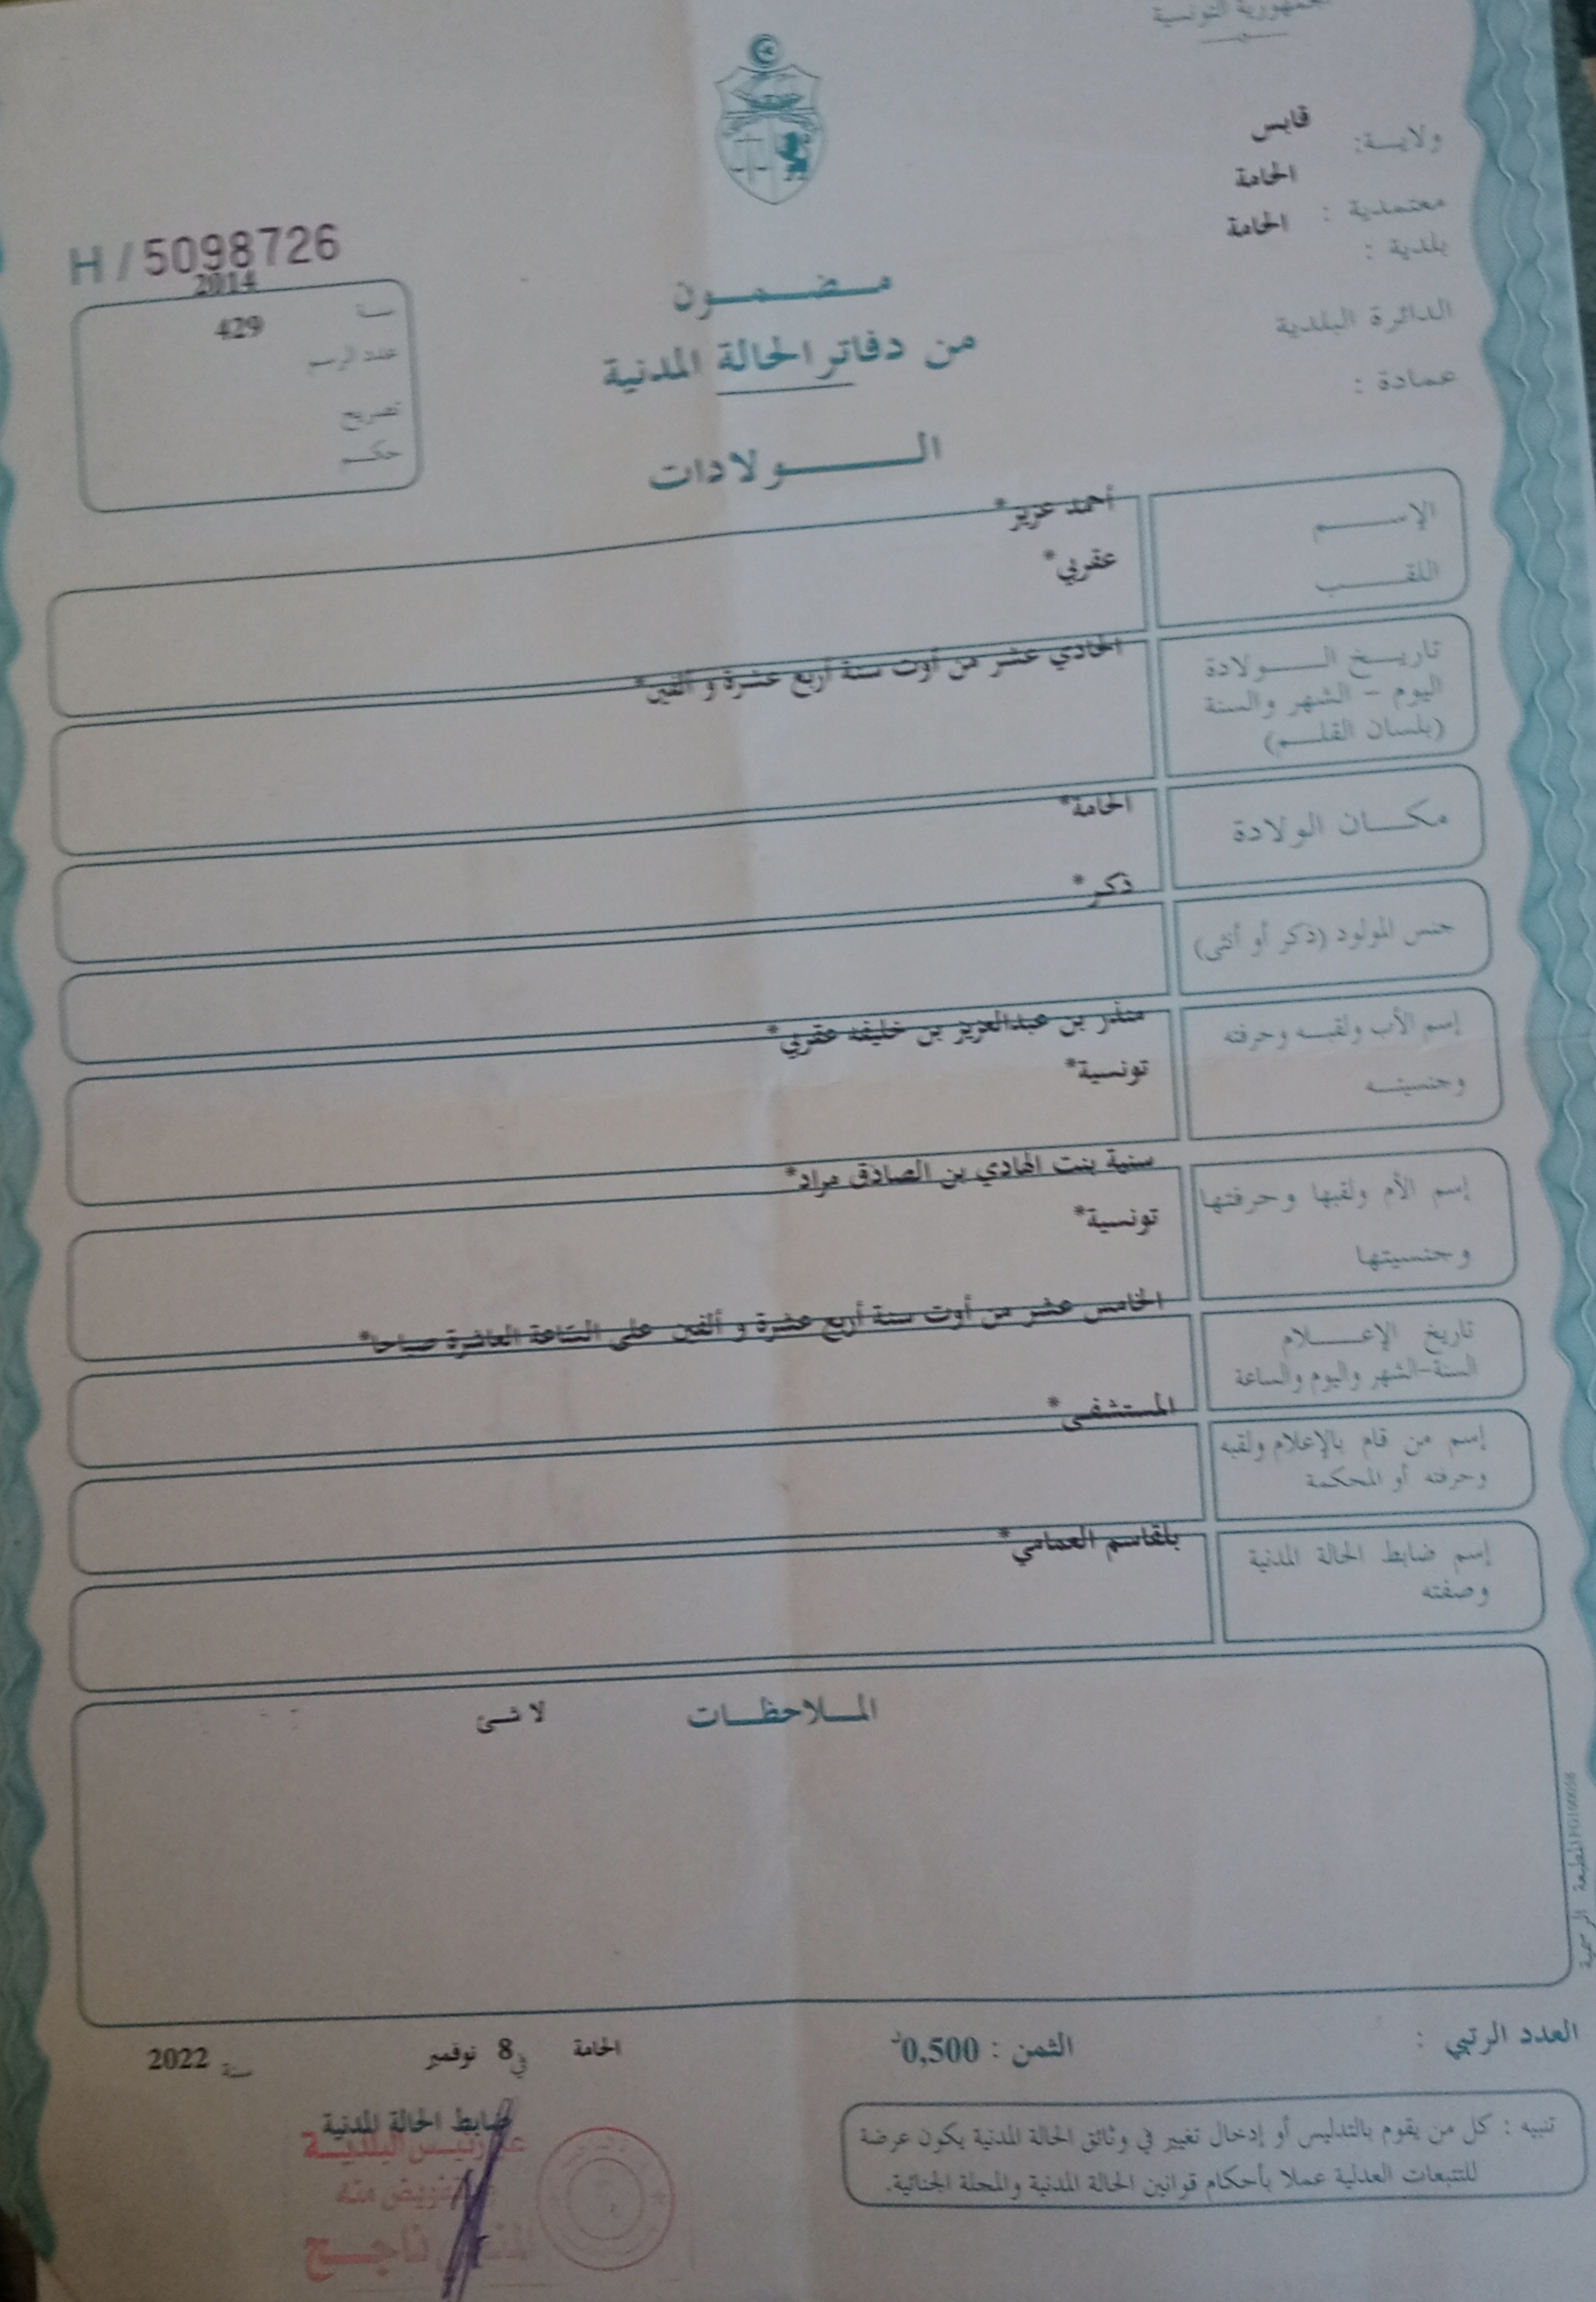 الجمهورية التونسية
ولايــة: قابس
معتمدية : الحامة
بلدية : الحامة
الدائرة البلدية
عمادة :
H / 5098726
سنة 2014
عدد الرسم 429
تصريح
حكم
مضمون
من دفاتر الحالة المدنية
الولادات
الإسم أحمد عزيز*
اللقب عقربي*
تاريخ الولادة
اليوم - الشهر والسنة
(بلسان القلم)
الحادي عشر من أوت سنة أربع عشرة و ألفين*
مكان الولادة الحامة*
جنس المولود (ذكر أو أنثى) ذكر*
إسم الأب ولقبه وحرفته منذر بن عبدالعزيز بن خليفه عقربي*
وجنسيته تونسية*
إسم الأم ولقبها وحرفتها سنية بنت الهادي بن الصادق مراد*
وجنسيتها تونسية*
تاريخ الإعلام
السنة-الشهر واليوم والساعة
الخامس عشر من أوت سنة أربع عشرة و ألفين على الساعة العاشرة صباحا*
إسم من قام بالإعلام ولقبه
وحرفته أو المحكمة
المستشفى*
إسم ضابط الحالة المدنية
وصفته
بلقاسم العمامي*
الملاحظات لا شئ
المطبعة الرسمية
العدد الرتبي :
الثمن : 0,500د
الحامة في 8 نوفمبر سنة 2022
ضابط الحالة المدنية
عن رئيس البلدية
بتفويض منه
ناجح
تنبيه : كل من يقوم بالتدليس أو إدخال تغيير في وثائق الحالة المدنية يكون عرضة
للتتبعات العدلية عملا بأحكام قوانين الحالة المدنية والمجلة الجنائية.